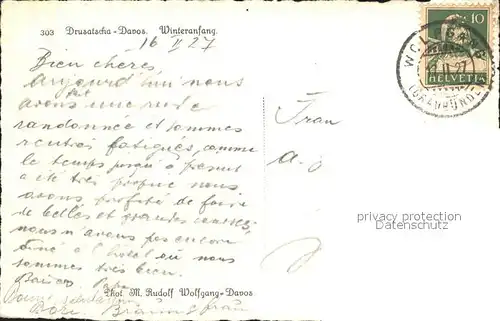 303 Drusatscha-Davos. Winteranfang.
16 II 27
10
HELVETIA
Bien chères
Aujourd'hui nous
avons fait une rude
randonnée et sommes
rentrés fatigués, comme
le temps jusqu'à présent
a été très propice nous
avons profité de faire
de belles et grandes courses,
nous n'avons pas encore
diné à l'hôtel où nous
sommes très bien.
Baisers Papa
Phot. M. Rudolf Wolfgang-Davos
Frau
a. g.
privacy protection
Datenschutz